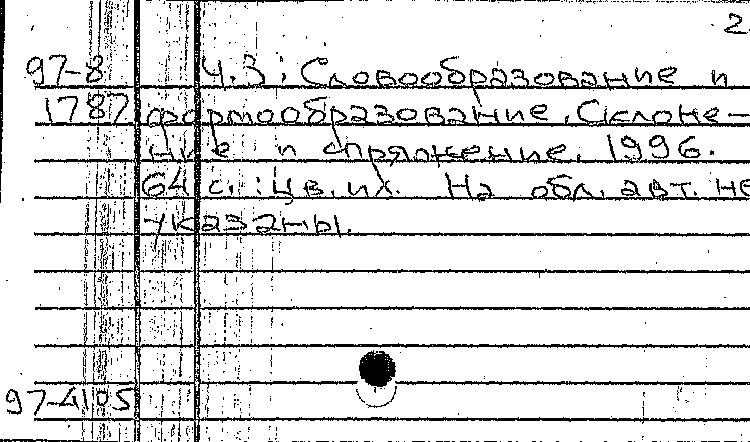 2
97-8 Ч.3: Словообразование и
1787 формообразование. Склоне-
ние и спряжение. 1996.
64 с.: цв. ил. На обл. авт. не
указаны.
97-4105